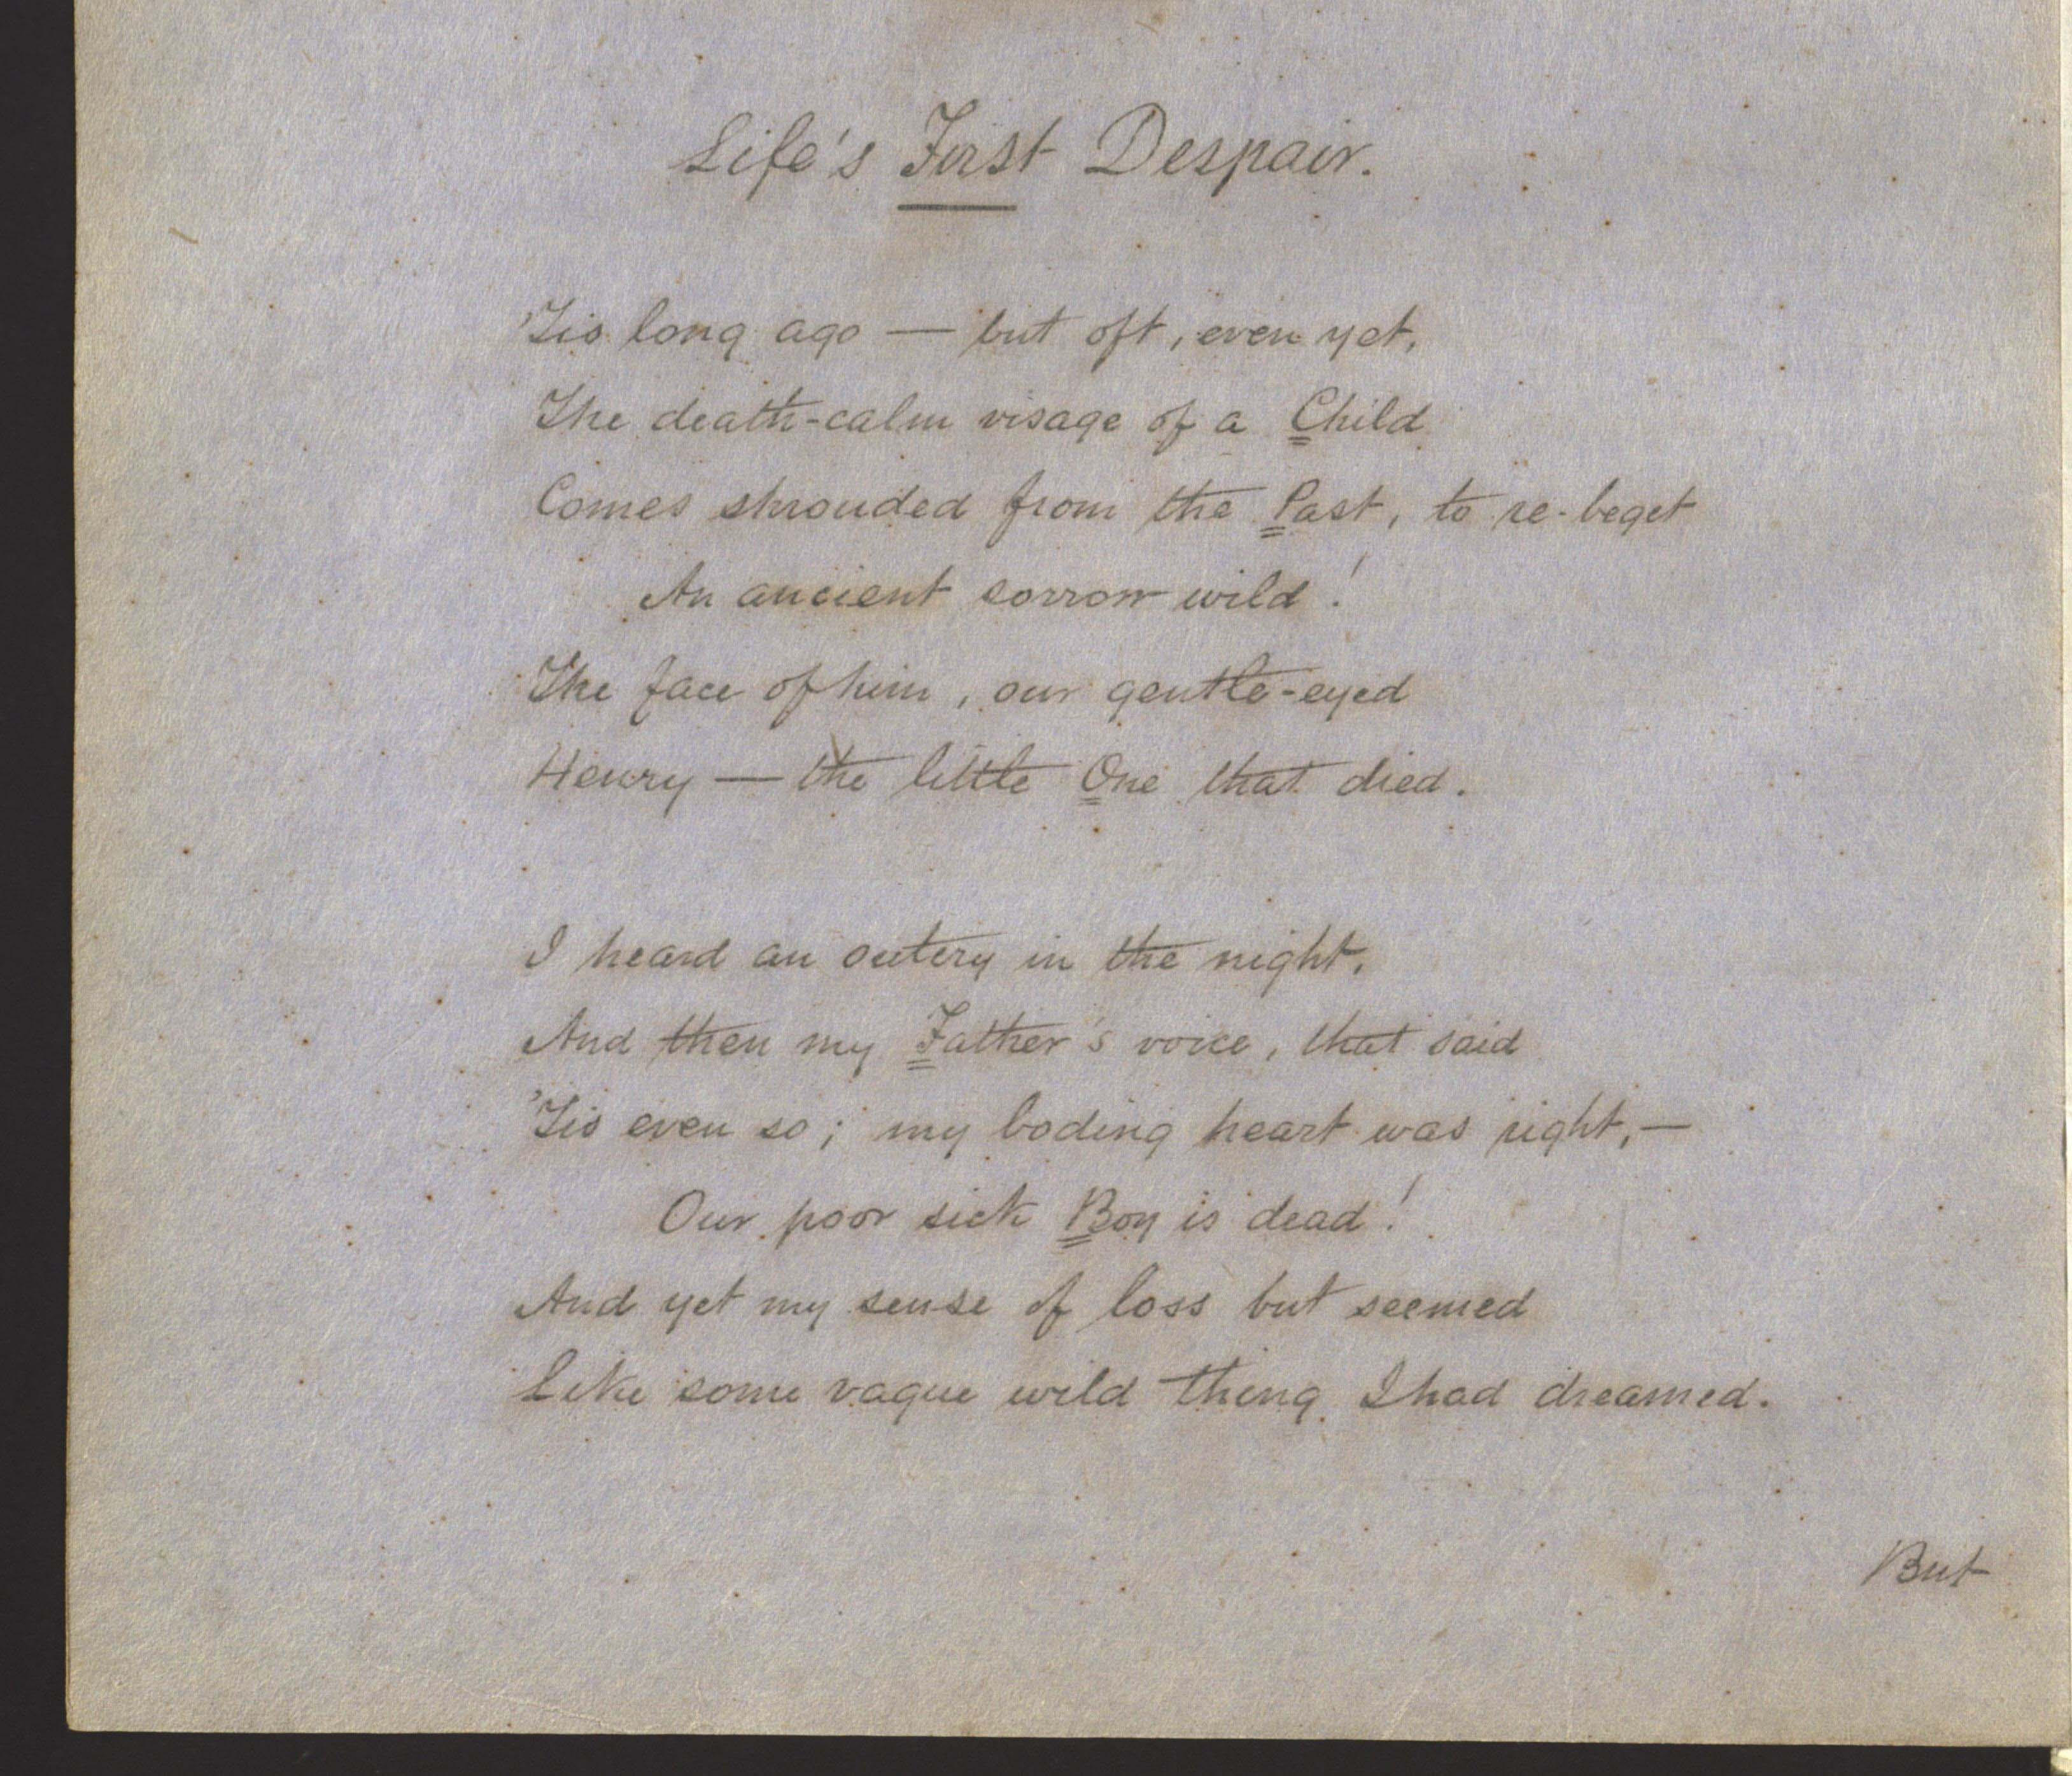 Life's First Despair.
'Tis long ago — but oft, even yet,
The death-calm visage of a Child
Comes shrouded from the Past, to re-beget
An ancient sorrow wild!
The face of him, our gentle-eyed
Henry — the little One that died.
I heard an outcry in the night,
And then my Father's voice, that said
'Tis even so; my boding heart was right, —
Our poor sick Boy is dead!
And yet my sense of loss but seemed
Like some vague wild thing I had dreamed.
But